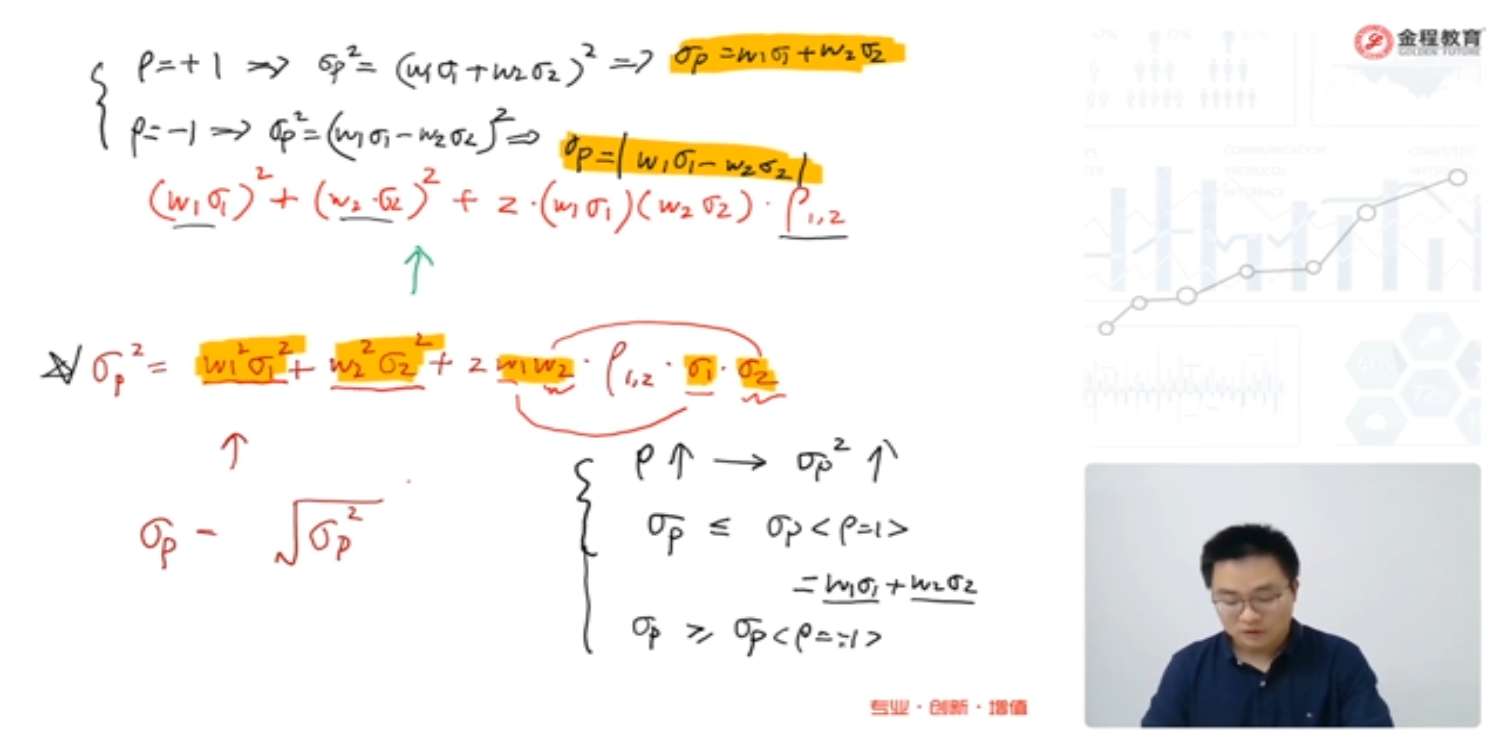 ρ=+1 ⇒ σp²=(w1σ1+w2σ2)² ⇒ σp=w1σ1+w2σ2
ρ=-1 ⇒ σp²=(w1σ1-w2σ2)² ⇒ σp=|w1σ1-w2σ2|
(w1σ1)²+(w2·σ2)²+2·(w1σ1)(w2σ2)·ρ1,2
σp²=w1²σ1²+w2²σ2²+2w1w2·ρ1,2·σ1·σ2
ρ↑→σp²↑
σp≤σp<ρ=1>
=w1σ1+w2σ2
σp≥σp<ρ=-1>
σp-√σp²
金程教育
GOLDEN FUTURE
专业·创新·增值